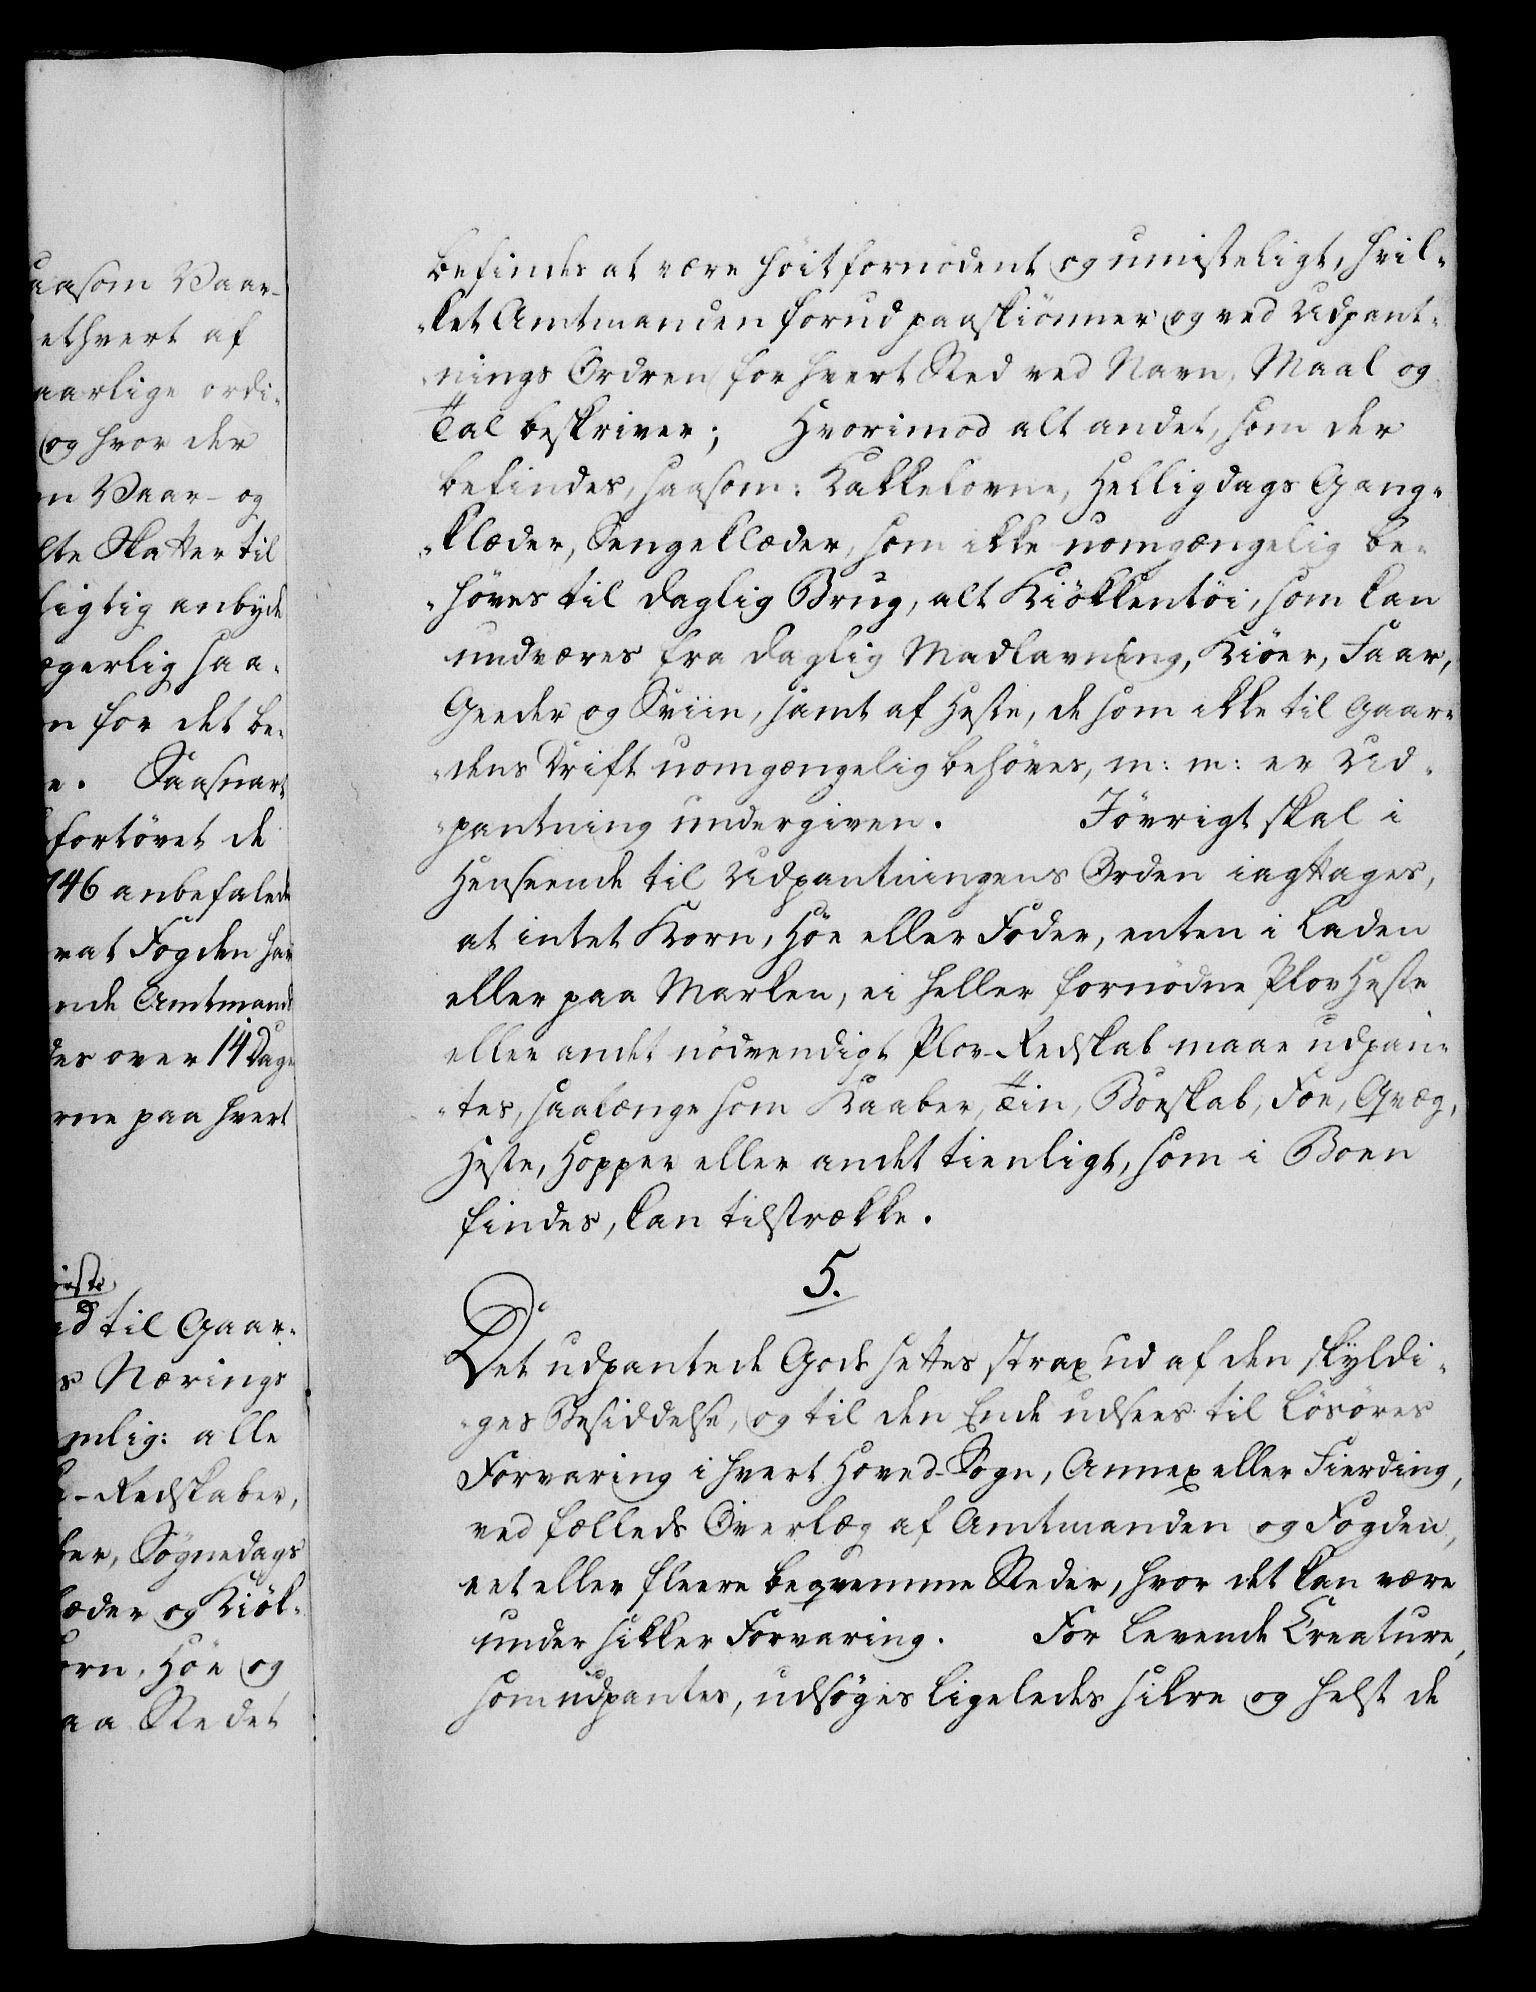 aasom Vaar-
ethvert af
aarlige ordi-
og hvor der
n Vaar- og
lte Skatter til
ligtig anbyde
ægerlig saa-
n for det be-
e. Saasnart
fortövet de
746 anbefalede
rat Fogden hav
nde Amtmand
des over 14 Dage
rne paa hvert
til Gaar-
s Nærings
mlig: alle
-Redskaber,
ker, Sögnedags
læder og Kiök-
orn, Höe og
aa Stedet
befindes at være höitfornödent og umisteligt, hvil-
-ket Amtmanden forud paaskiönner og ved Udpant-
-nings Ordren for hvert Sted ved Navn, Maal og
Tal beskriver; Hvorimod alt andet, som der
befindes, saasom: Kakkelovne, Helligdags Gang-
-klæder, Sengeklæder, som ikke uomgængelig be-
-höves til daglig Brug, alt Kiökkentöi, som kan
undværes fra daglig Madlavning, Kiöer, Faar,
Geeder og Sviin, samt af Heste, de som ikke til Gaar-
-dens Drift uomgængelig behöves, m: m: er Ud-
-pantning undergiven. Jövrigt skal i
Henseende til Udpantningens Orden iagttages,
at intet Korn, Höe eller Foder, enten i Laden
eller paa Marken, ei heller fornödne Plov Heste
eller andet nödvendigt Plov-Redskab maae udpan-
-tes, saalænge som Kaaber, Tin, Boeskab, Foe, Qvæg,
Heste, Hopper eller andet tienligt, som i Boen
findes, kan tilstrække.
5.
Det udpantede Gods settes strax ud af den skyldi-
-ges Besiddelse, og til den Ende udsees til Lösöres
Forvaring i hvert Hoved-Sogn, Annex eller Fierding,
ved fælleds Overlæg af Amtmanden og Fogden,
eet eller fleere beqvemme Steder, hvor det kan være
under sikker Forvaring. For levende Creature,
som udpantes, udsöges ligeledes sikre og helst de